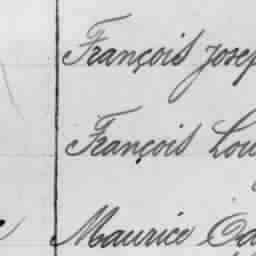 François Josep
François Lou
Maurice Ed